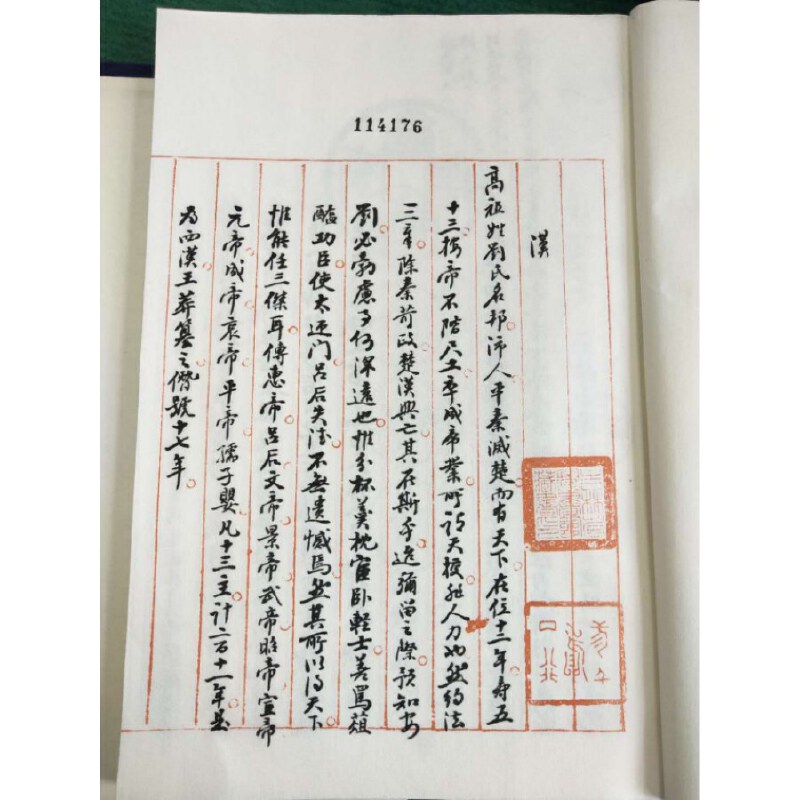 114176
漢
高祖姓劉氏名邦沛人平秦滅楚而有天下在位十二年壽五
十三按帝不階尺土卒成帝業所謂天授非人力也然約法
三章除秦苛政楚漢興亡其在斯乎迨彌留之際預知安
劉必勃慮事何深遠也惟分杯羹枕宦卧輕士善罵葅
醢功臣使太 呂后失德不無遺憾焉然其所以得天下
惟能任三傑耳傳惠帝呂后文帝景帝武帝昭帝宣帝
元帝成帝哀帝平帝孺子嬰凡十三主計二百十一年是
為西漢王莽篡之僭號十七年